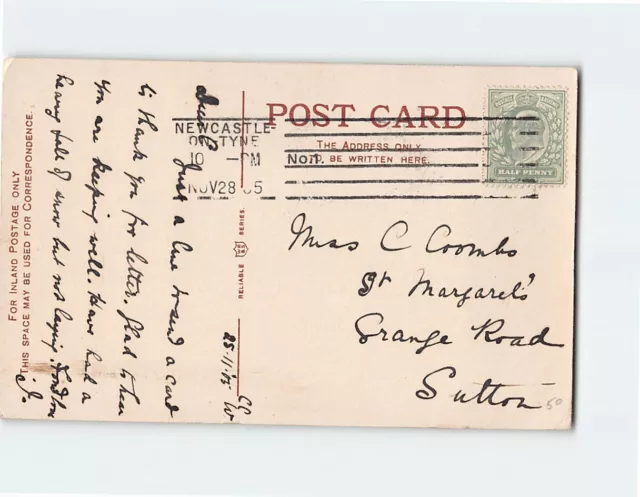 POST CARD
THE ADDRESS ONLY
TO BE WRITTEN HERE.
NEWCASTLE
ON TYNE
10 -PM
NOV 28 05
No11.
HALF PENNY
FOR INLAND POSTAGE ONLY
THIS SPACE MAY BE USED FOR CORRESPONDENCE.
RELIABLE SERIES.
Just a line to send a card
to thank you for letter. Glad to hear
you are keeping well. Have had a
heavy fall of snow but not laying. Fond love
J.
Miss C Coombs
St Margaret's
Grange Road
Sutton
50